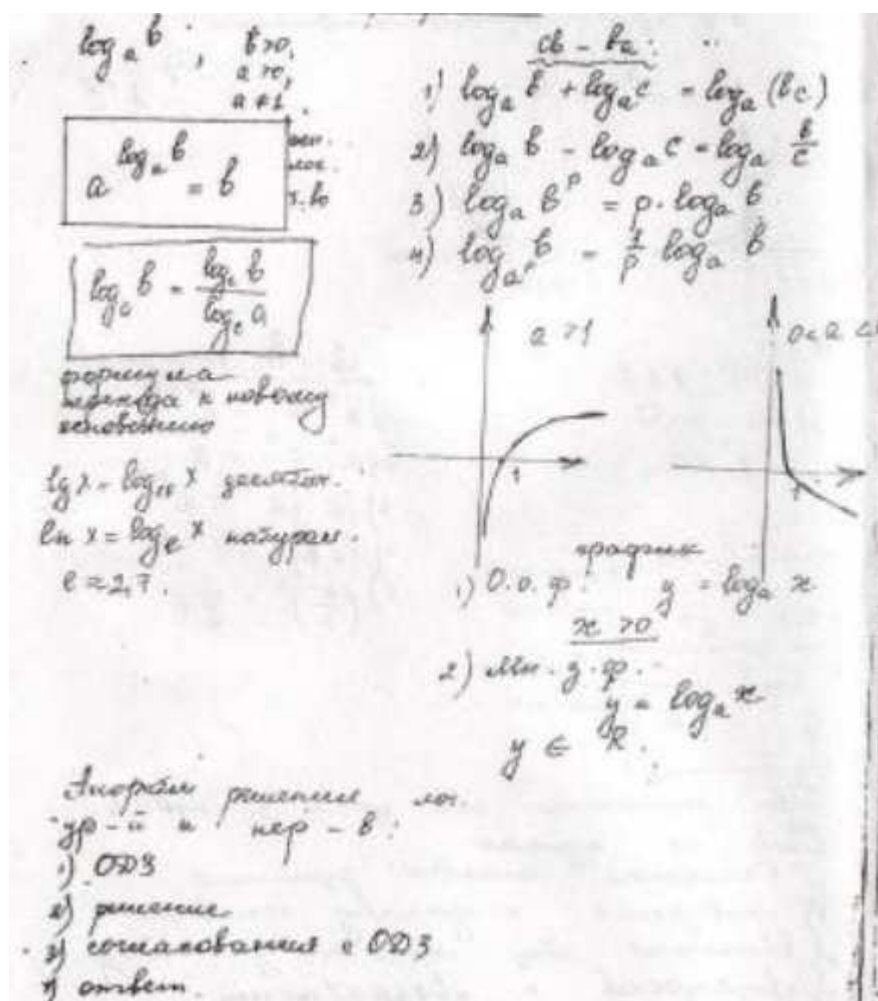 logₐ b, b>0,
a>0,
a≠1.
a^(logₐ b) = b
осн.
лог.
т-во
logₐ b = log_c b / log_c a
формула
перехода к новому
основанию
lg x = log₁₀ x десятич.
ln x = logₑ x натурал.
e ≈ 2,7.
св-ва:
1) logₐ b + logₐ c = logₐ (bc)
2) logₐ b - logₐ c = logₐ b/c
3) logₐ b^p = p·logₐ b
4) log_(a^p) b = 1/p logₐ b
a>1
1
0<a<1
1
график
1) О.о.ф. y = logₐ x
x>0
2) Мн.з.ф.
y = logₐ x
y ∈ R.
Алгоритм решения лог.
ур-й и нер-в:
1) ОДЗ
2) решение
3) согласования с ОДЗ
4) ответ.